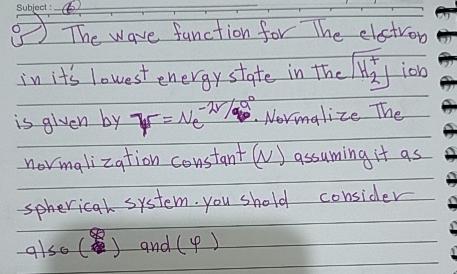 Subject: 6
The wave function for The electron
in it's lowest energy state in the H₂⁺ ion
is given by ψ = Ne^-2r/a₀. Normalize The
normalization constant (N) assuming it as
spherical system. you shold consider
also ( ) and (φ)